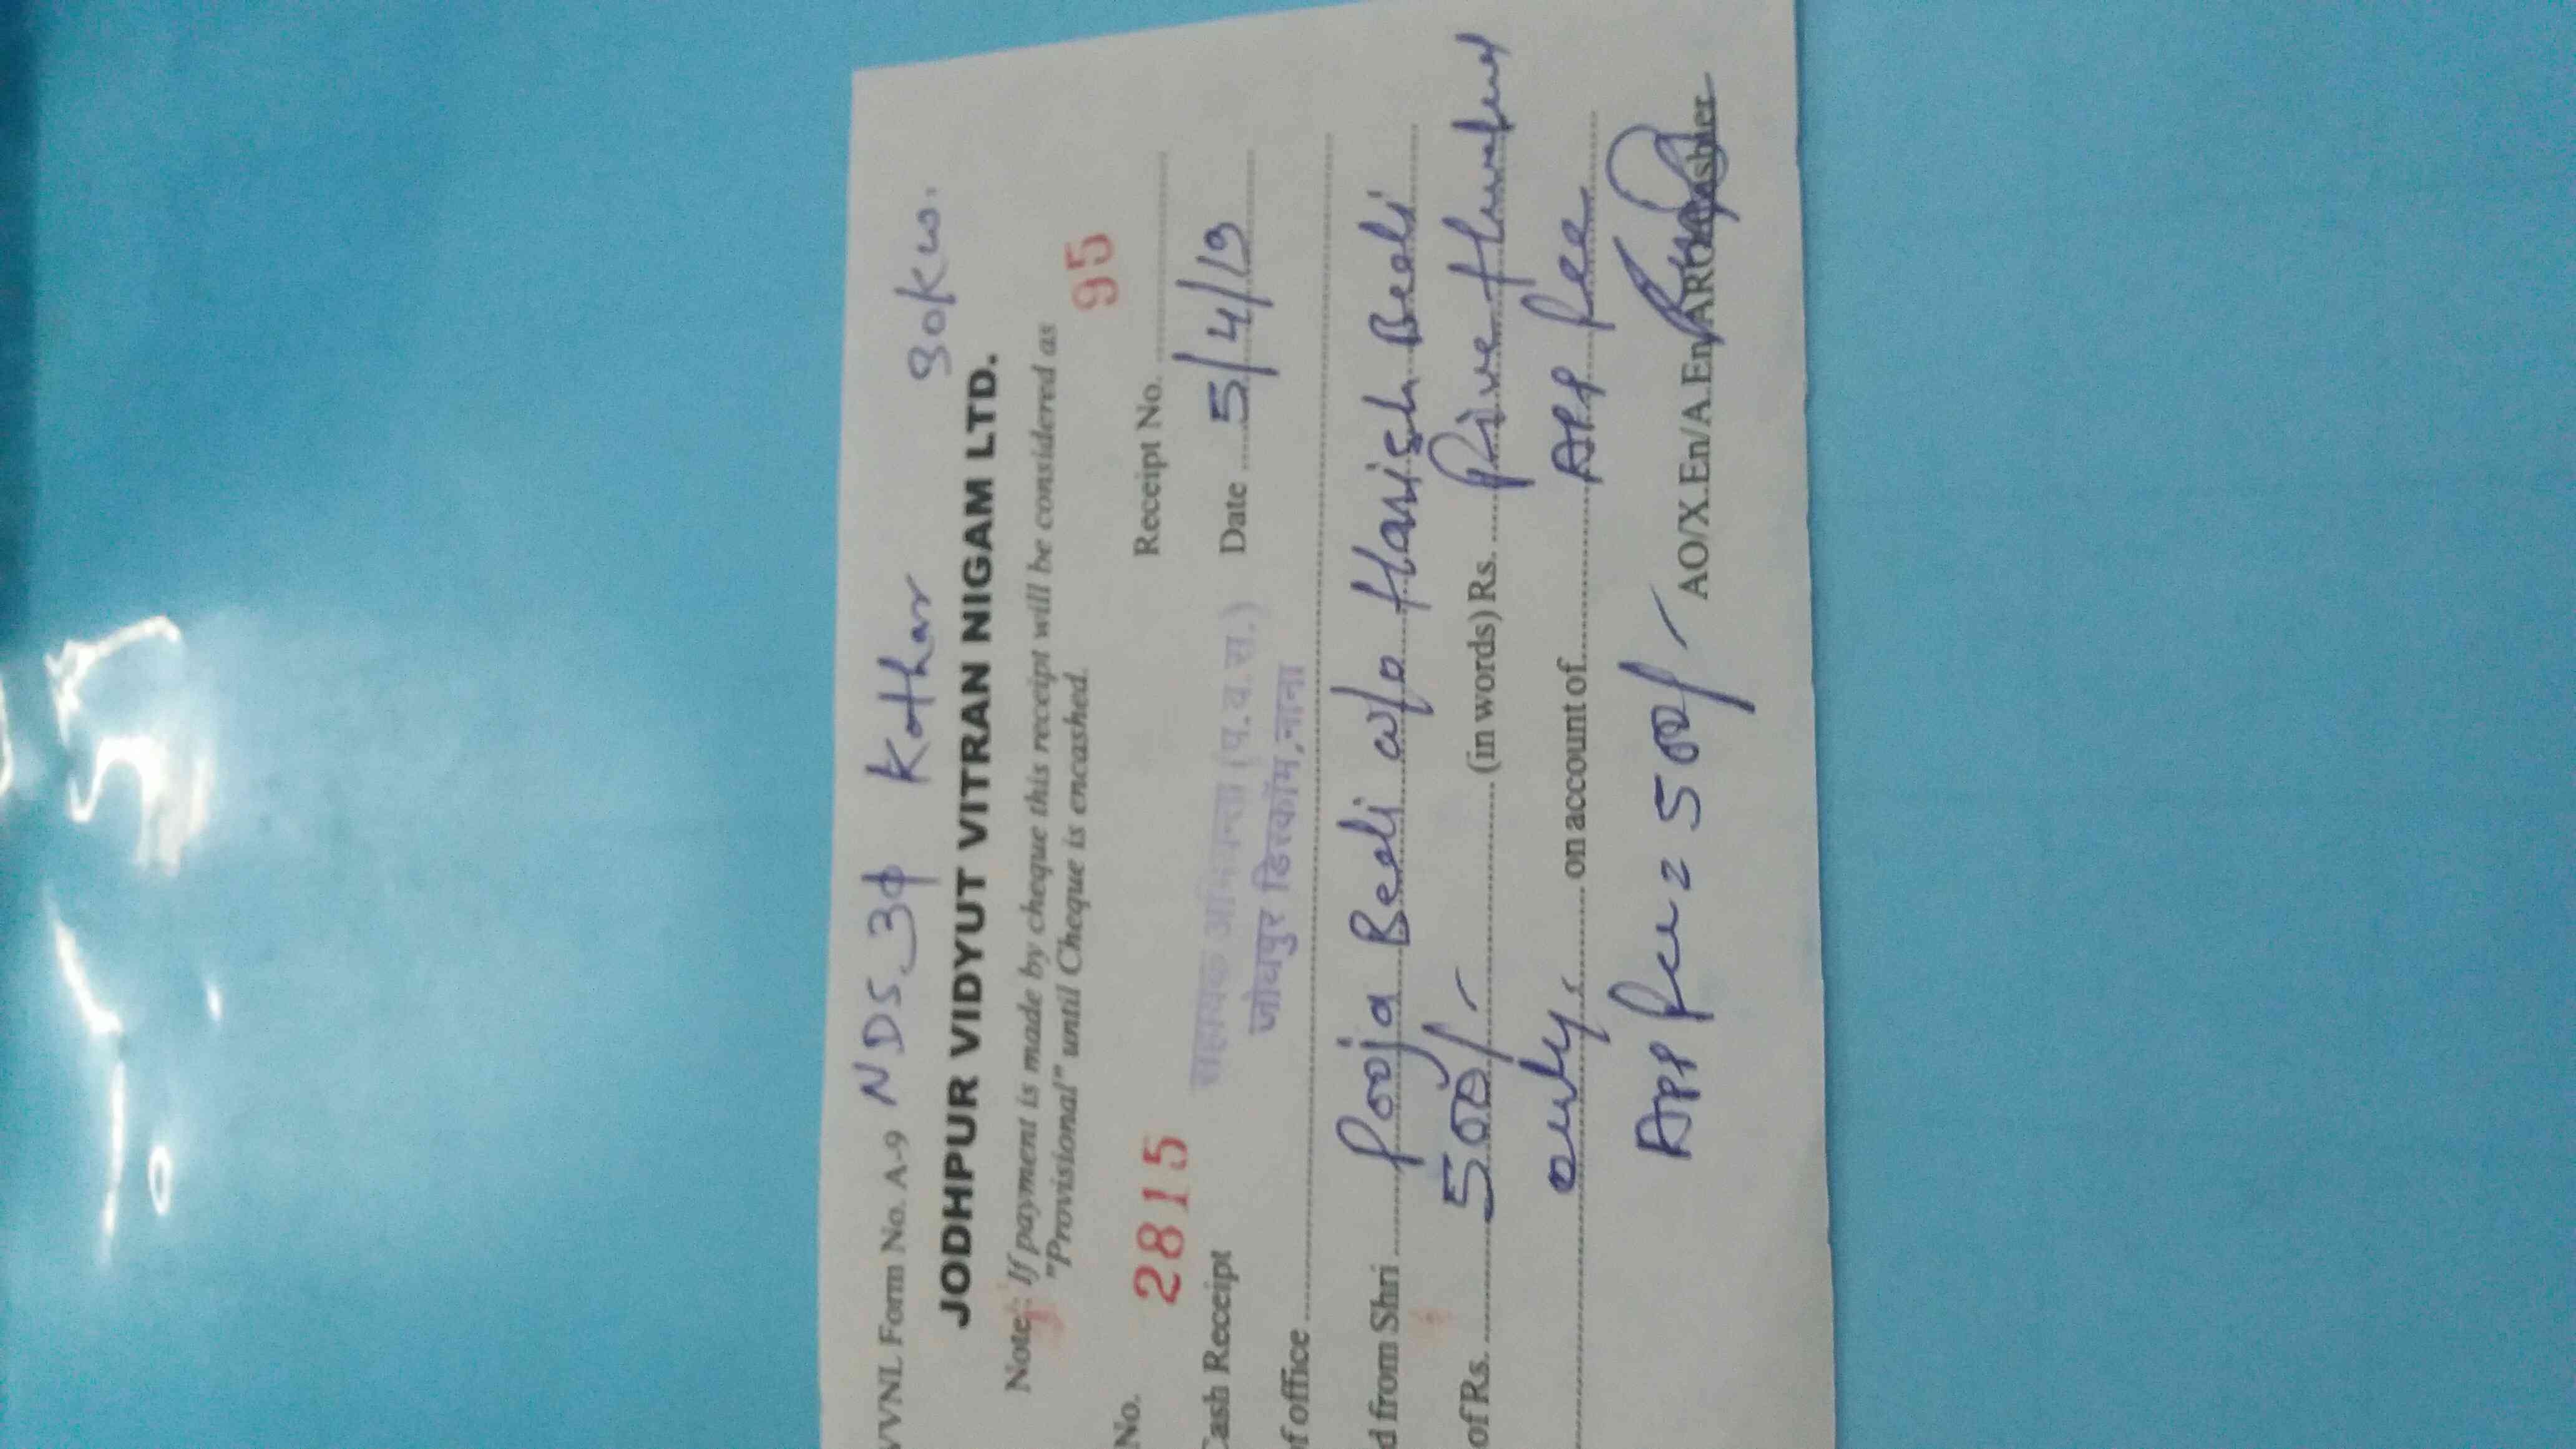 VVNL Form No. A-9 NDS 3φ Kothar 30kw.
JODHPUR VIDYUT VITRAN NIGAM LTD.
Note : If payment is made by cheque this receipt will be considered as
"Provisional" until Cheque is encashed.
95
No. 2815 Receipt No.
Cash Receipt सहायक अभियन्ता (प.व.स.) Date 5/4/19
जोधपुर डिस्कॉम, नाना
of office
d from Shri Pooja Beoli w/o Harish Beoli
of Rs. 500/- (in words) Rs. Five Hundred
only. on account of APP fee
APP fee = 500/-
AO/X.En/A.En/ARO/Cashier